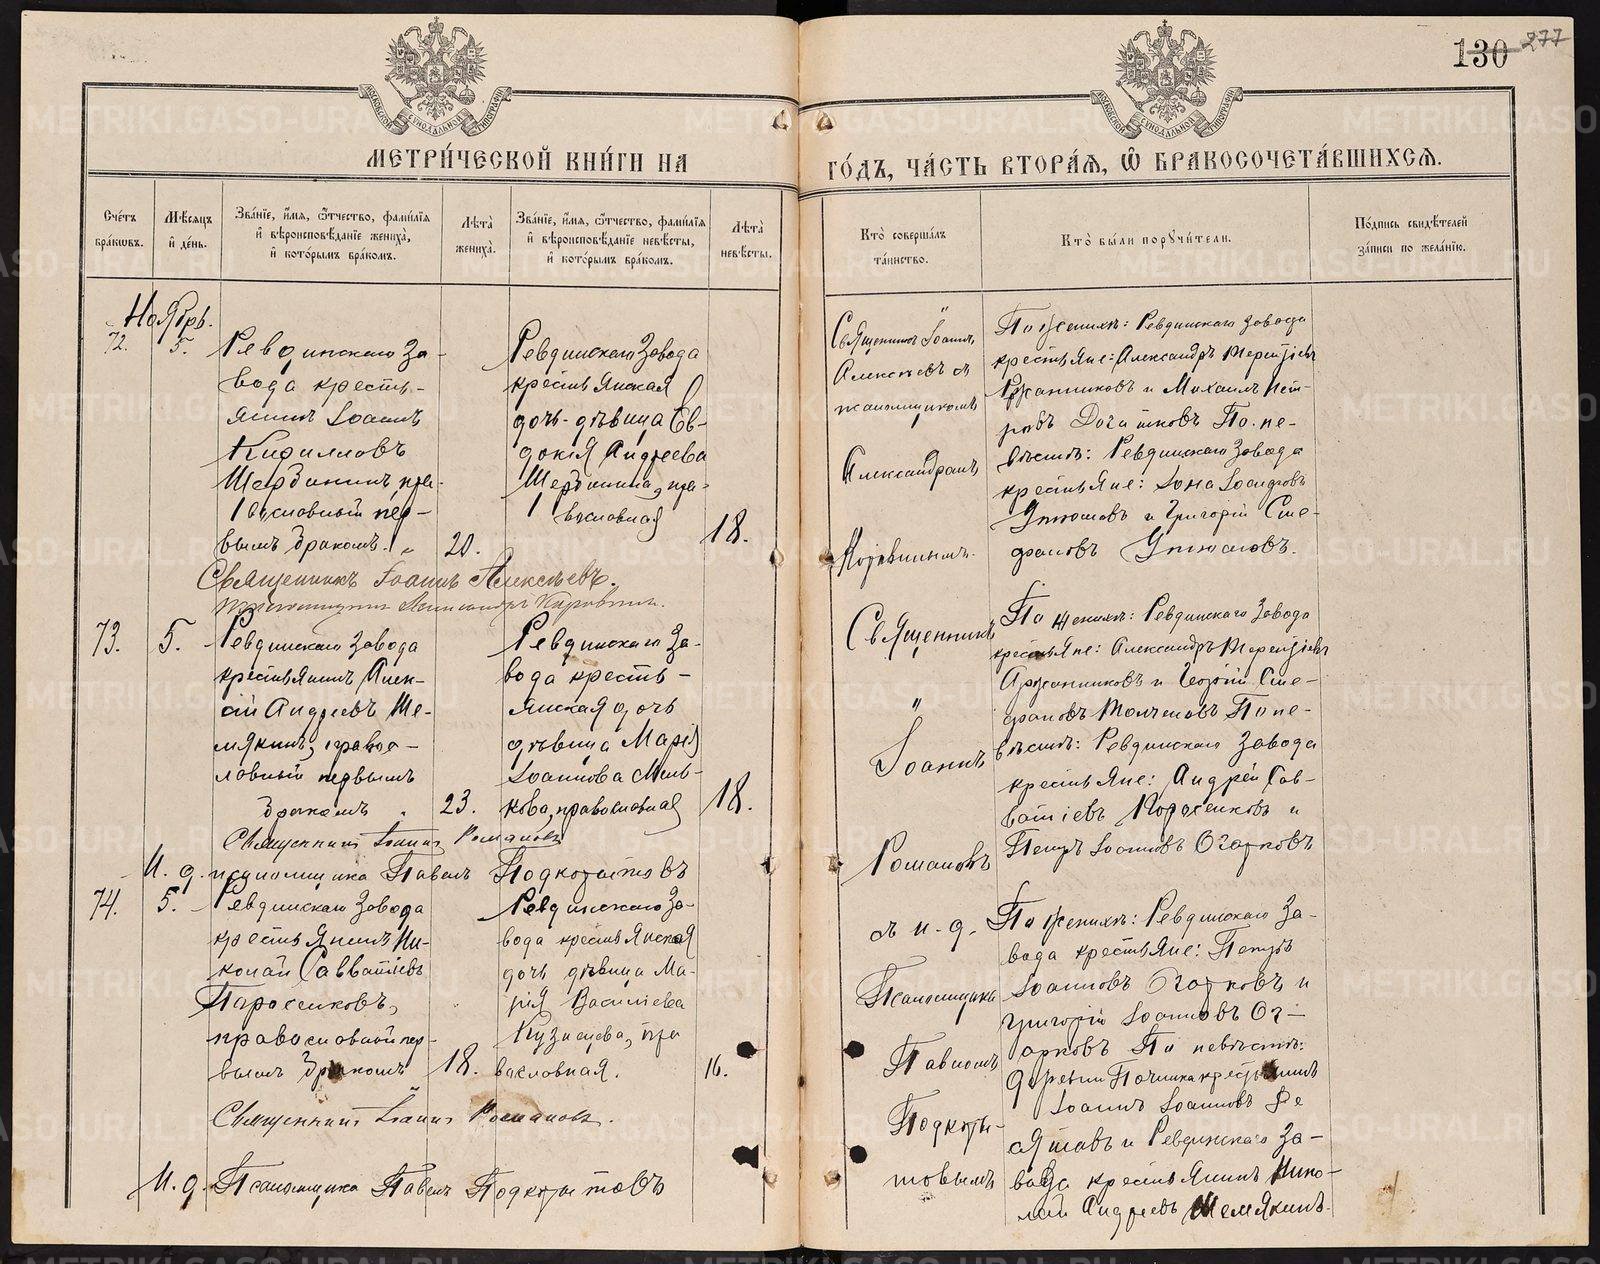 130 277
МОСКОВСКОЙ СѴНОДАЛЬНОЙ ТИПОГРАФІИ
МОСКОВСКОЙ СѴНОДАЛЬНОЙ ТИПОГРАФІИ
МЕТРИ́ЧЕСКОЙ КНИ́ГИ НА
ГО́ДЪ, ЧА́СТЬ ВТОРА́Ѧ, Ѽ БРАКОСОЧЕТА́ВШИХСѦ.
Сче́тъ бра́кѡвъ.
Мѣ́сѧцъ и҆ де́нь.
Зва́нїе, и҆́мѧ, ѻ҆́тчество, фами́лїѧ и҆ вѣроисповѣ́данїе жениха̀, и҆ кото́рымъ бра́комъ.
Лѣ́та̀ жениха̀.
Зва́нїе, и҆́мѧ, ѻ҆́тчество, фами́лїѧ и҆ вѣроисповѣ́данїе невѣ́сты, и҆ кото́рымъ бра́комъ.
Лѣ́та̀ невѣ́сты.
Кто̀ соверша́лъ та́инство.
Кто̀ бы́ли порꙋчи́тели.
По́дпись свидѣ́телей за́писи по жела́нїю.
Ноябрь.
72. 5.
Ревдинскаго За-
вода кресть-
янинъ Іоаннъ
Кирилловъ
Щербининъ, пра-
вославный пер-
вымъ бракомъ.
20.
Ревдинскаго Завода
крестьянская
дочь-дѣвица Ев-
докія Андреева
Щербинина, пра-
вославная
18.
Священникъ Іоаннъ
Алексѣевъ съ
псаломщикомъ
Александромъ
По женихѣ: Ревдинскаго завода
крестьяне: Александръ Терентіевъ
Аржанниковъ и Михаилъ Пет-
ровъ По не-
вѣстѣ: Ревдинскаго Завода
крестьяне: Іона Іоанновъ
и Григорій Сте-
фановъ
Священникъ Іоаннъ Алексѣевъ.
73. 5.
Ревдинскаго Завода
крестьянинъ Алек-
сій Андреевъ Ше-
мякинъ, правос-
лавный первымъ
бракомъ
23.
Ревдинскаго За-
вода кресть-
янская дочь
дѣвица Марія
Іоаннова Мель-
кова, православная
18.
Священникъ
Іоаннъ
Романовъ
По женихѣ: Ревдинскаго Завода
крестьяне: Александръ Терентіевъ
Аржанниковъ и Георгій Сте-
фановъ Толмачевъ По не-
вѣстѣ: Ревдинскаго Завода
крестьяне: Андрей Сав-
ватіевъ и
Петръ Іоанновъ Огарковъ
Священникъ Іоаннъ Романовъ
И. д. псаломщика Павелъ Подкорытовъ
74. 5.
Ревдинскаго Завода
крестьянинъ Ни-
колай Савватіевъ
Паросенковъ,
православный пер-
вымъ бракомъ
18.
Ревдинскаго За-
вода крестьянская
дочь дѣвица Ма-
рія Василіева
Кузнецова, пра
вославная.
16.
съ и. д.
Псаломщика
Павломъ
Подкоры-
товымъ
По женихѣ: Ревдинскаго За-
вода крестьяне: Петръ
Іоанновъ Огарковъ и
Григорій Іоанновъ Ог-
арковъ По невѣстѣ:
деревни Починка крестьянинъ
Іоаннъ Іоанновъ Де
сятовъ и Ревдинскаго За-
вода крестьянинъ Нико-
лай Андреевъ Шемякинъ.
Священникъ Іоаннъ Романовъ.
И. д. Псаломщика Павелъ Подкорытовъ
METRIKI.GASO-URAL.RU